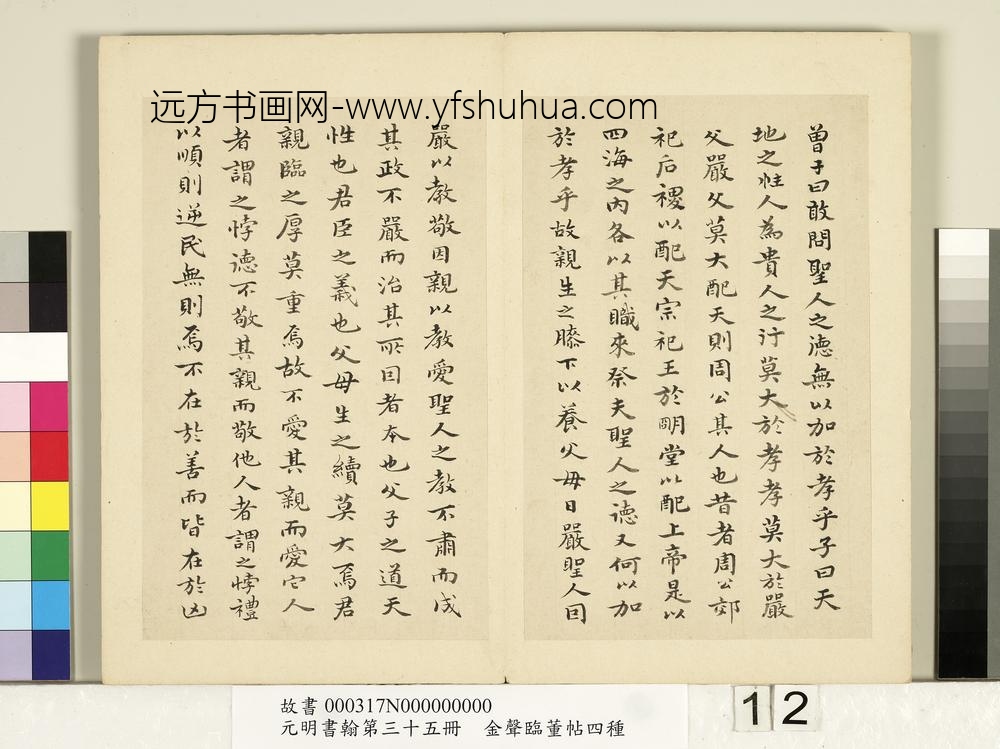 远方书画网-www.yfshuhua.com
曾子曰敢問聖人之德無以加於孝乎子曰天
地之性人為貴人之行莫大於孝孝莫大於嚴
父嚴父莫大配天則周公其人也昔者周公郊
祀后稷以配天宗祀王於明堂以配上帝是以
四海之內各以其職來祭夫聖人之德又何以加
於孝乎故親生之膝下以養父母日嚴聖人因
嚴以教敬因親以教愛聖人之教不肅而成
其政不嚴而治其所因者本也父子之道天
性也君臣之義也父母生之續莫大焉君
親臨之厚莫重焉故不愛其親而愛它人
者謂之悖德不敬其親而敬他人者謂之悖禮
以順則逆民無則焉不在於善而皆在於凶
故書 000317N000000000
元明書翰第三十五冊 金聲臨董帖四種
12